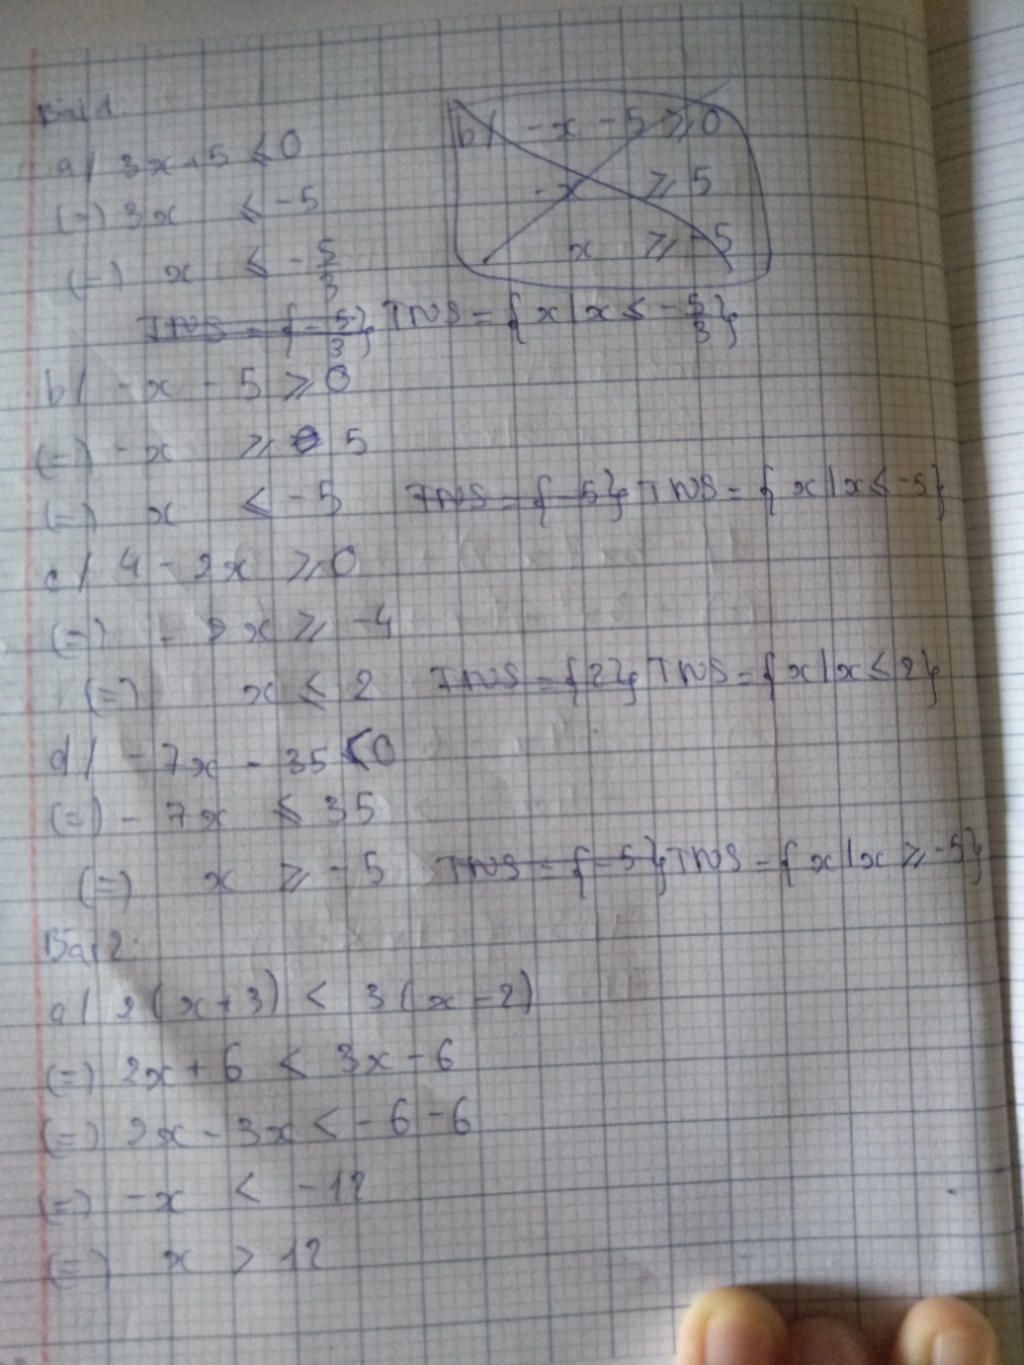 Bài 1.
a) 3x+5 ≤ 0
(=) 3x ≤ -5
(=) x ≤ -5/3
TNS = {-5/3} TNS = { x | x ≤ -5/3}
b) -x - 5 ≥ 0
-x ≥ 5
x ≥ -5
b) -x - 5 ≥ 0
(=) -x ≥ 5
(=) x ≤ -5 TNS = {-5} TNS = { x | x ≤ -5}
c) 4 - 2x ≥ 0
(=) -2x ≥ -4
(=) x ≤ 2 TNS = {2} TNS = { x | x ≤ 2}
d) -7x - 35 < 0
(=) -7x ≤ 35
(=) x ≥ -5 TNS = {-5} TNS = { x | x ≥ -5}
Bài 2:
a) 2(x+3) < 3(x-2)
(=) 2x+6 < 3x-6
(=) 2x-3x < -6-6
(=) -x < -12
(=) x > 12